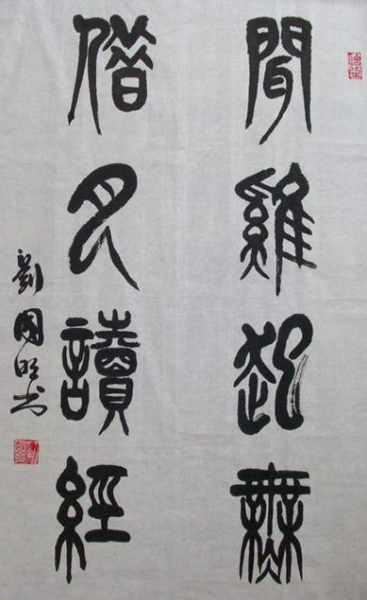 聞雞起舞
借月讀經
劉國明书